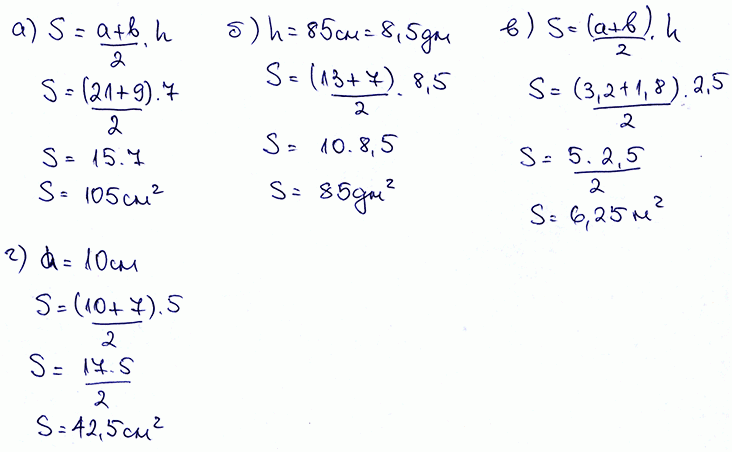 а) S = a+b/2 · h
S = (21+9)/2 · 7
S = 15 · 7
S = 105 см²
б) h = 85 см = 8,5 дм
S = (13+7)/2 · 8,5
S = 10 · 8,5
S = 85 дм²
в) S = (a+b)/2 · h
S = (3,2+1,8)/2 · 2,5
S = 5 · 2,5/2
S = 6,25 м²
г) a = 10 см
S = (10+7)/2 · 5
S = 17 · 5/2
S = 42,5 см²